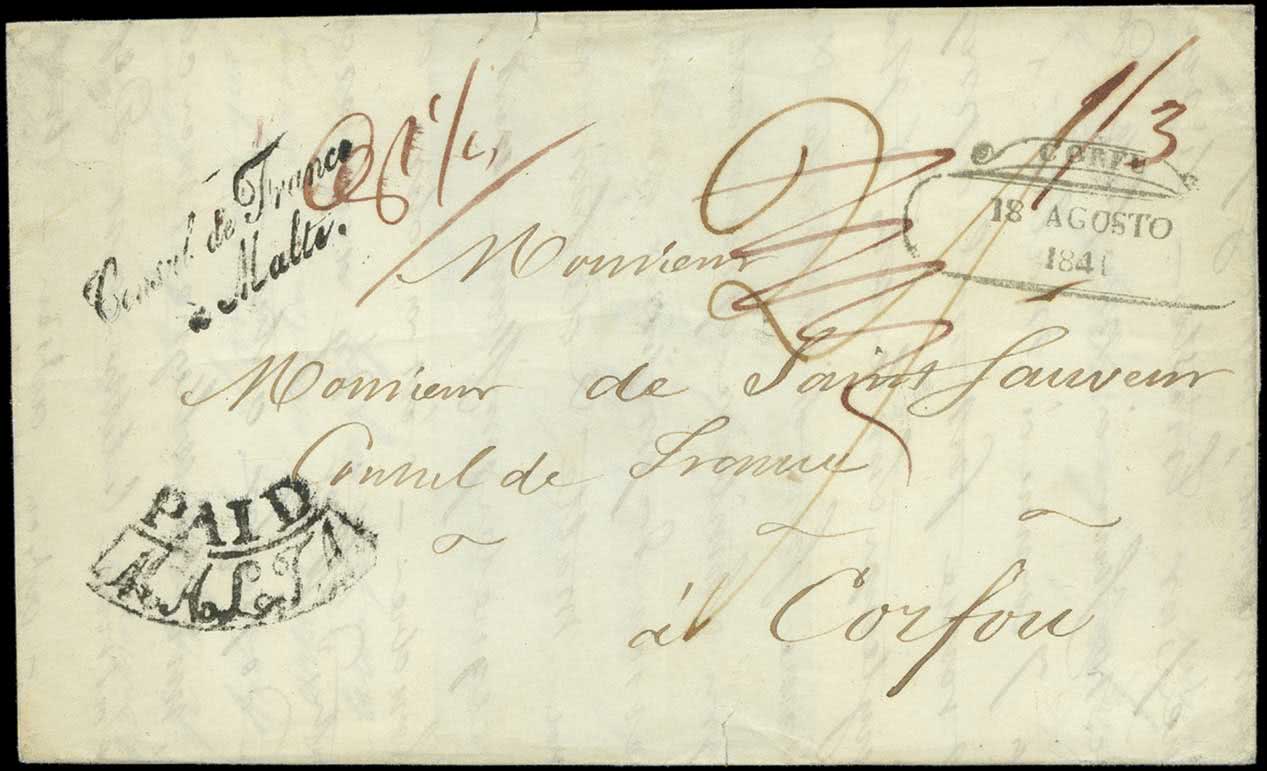 Consul de France
à Malte.
1/3
CORFU
18 AGOSTO
184
Monsieur
Monsieur de Saint Sauveur
Consul de France
à Corfou
PAID
MALTA